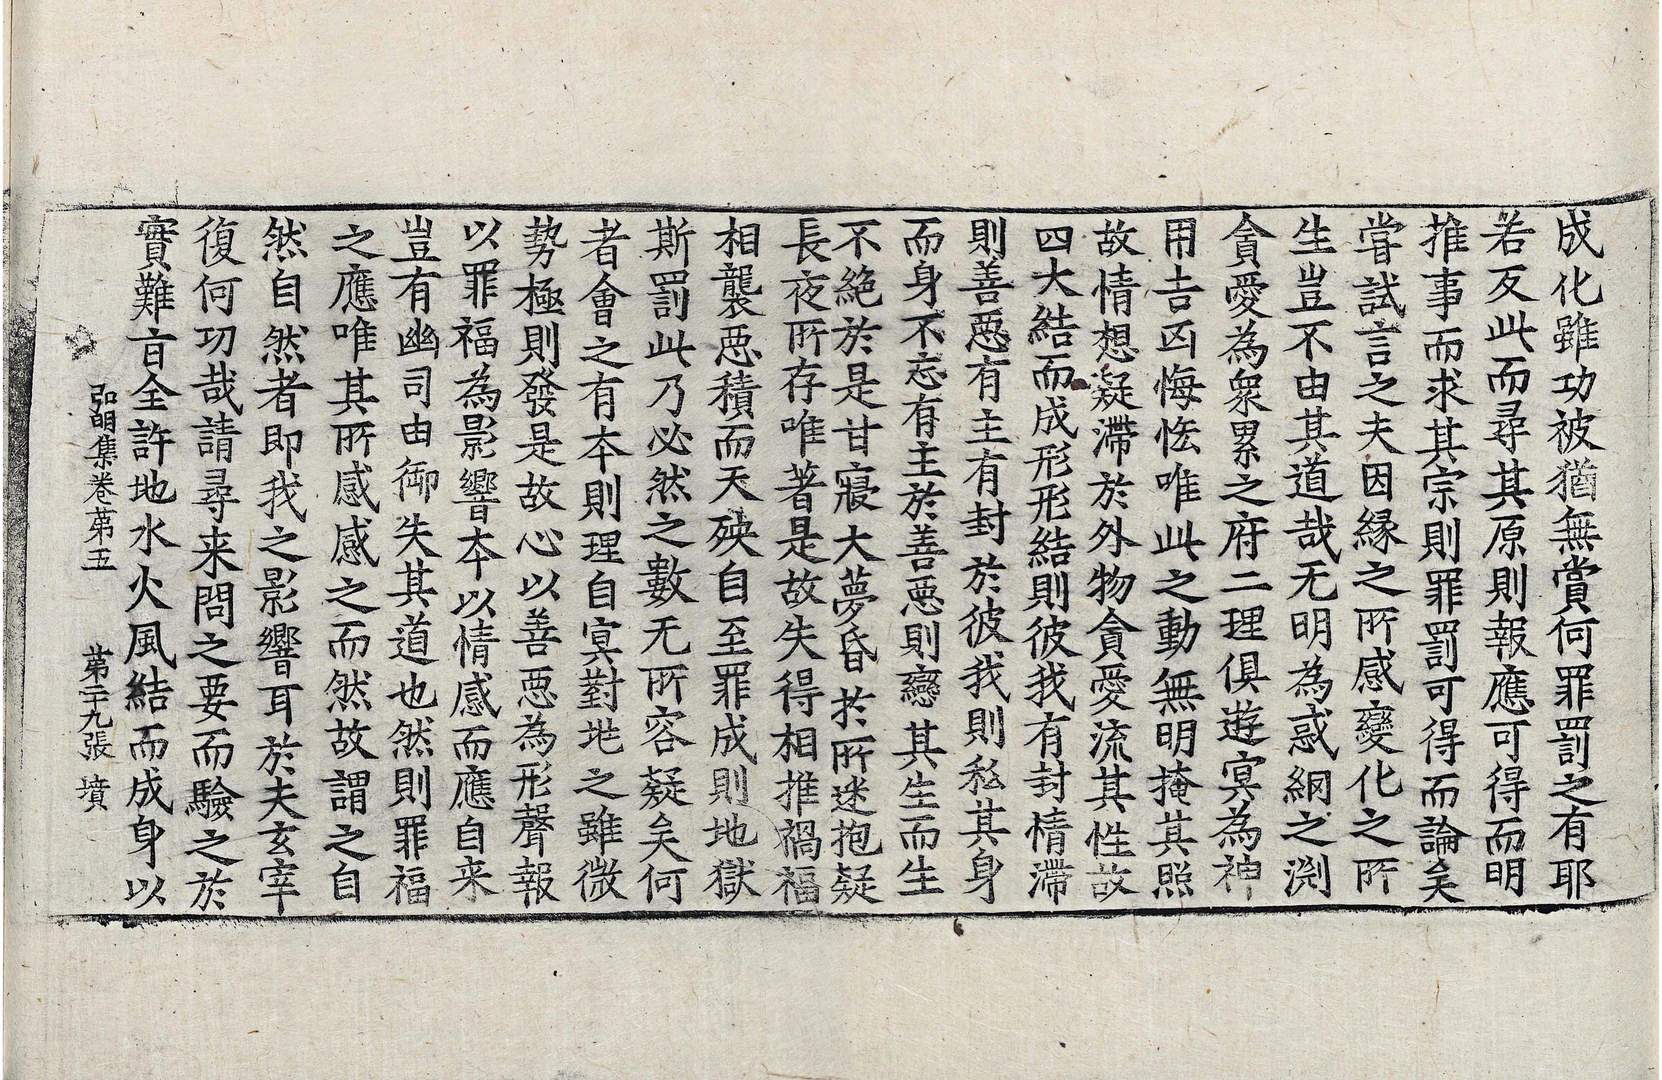 成化雖功被猶無賞何罪罰之有耶
若反此而尋其原則報應可得而明
推事而求其宗則罪罰可得而論矣
甞試言之夫因緣之所感變化之所
生豈不由其道哉无明爲惑網之渕
貪愛爲衆累之府二理俱遊冥爲神
用吉凶悔恡唯此之動無明掩其照
故情想凝滯於外物貪愛流其性故
四大結而成形形結則彼我有封情滯
則善惡有主有封於彼我則私其身
而身不忘有主於善惡則戀其生而生
不絶於是甘寢大夢昏於所迷抱疑
長夜所存唯著是故失得相推禍福
相襲惡積而天殃自至罪成則地獄
斯罰此乃必然之數无所容疑矣何
者會之有本則理自冥對地之雖微
勢極則發是故心以善惡爲形聲報
以罪福爲影響本以情感而應自来
豈有幽司由御失其道也然則罪福
之應唯其所感感之而然故謂之自
然自然者即我之影響耳於夫玄宰
復何功哉請尋来問之要而驗之於
實難㫖全許地水火風結而成身以
弘明集卷第五 第二十九張 墳